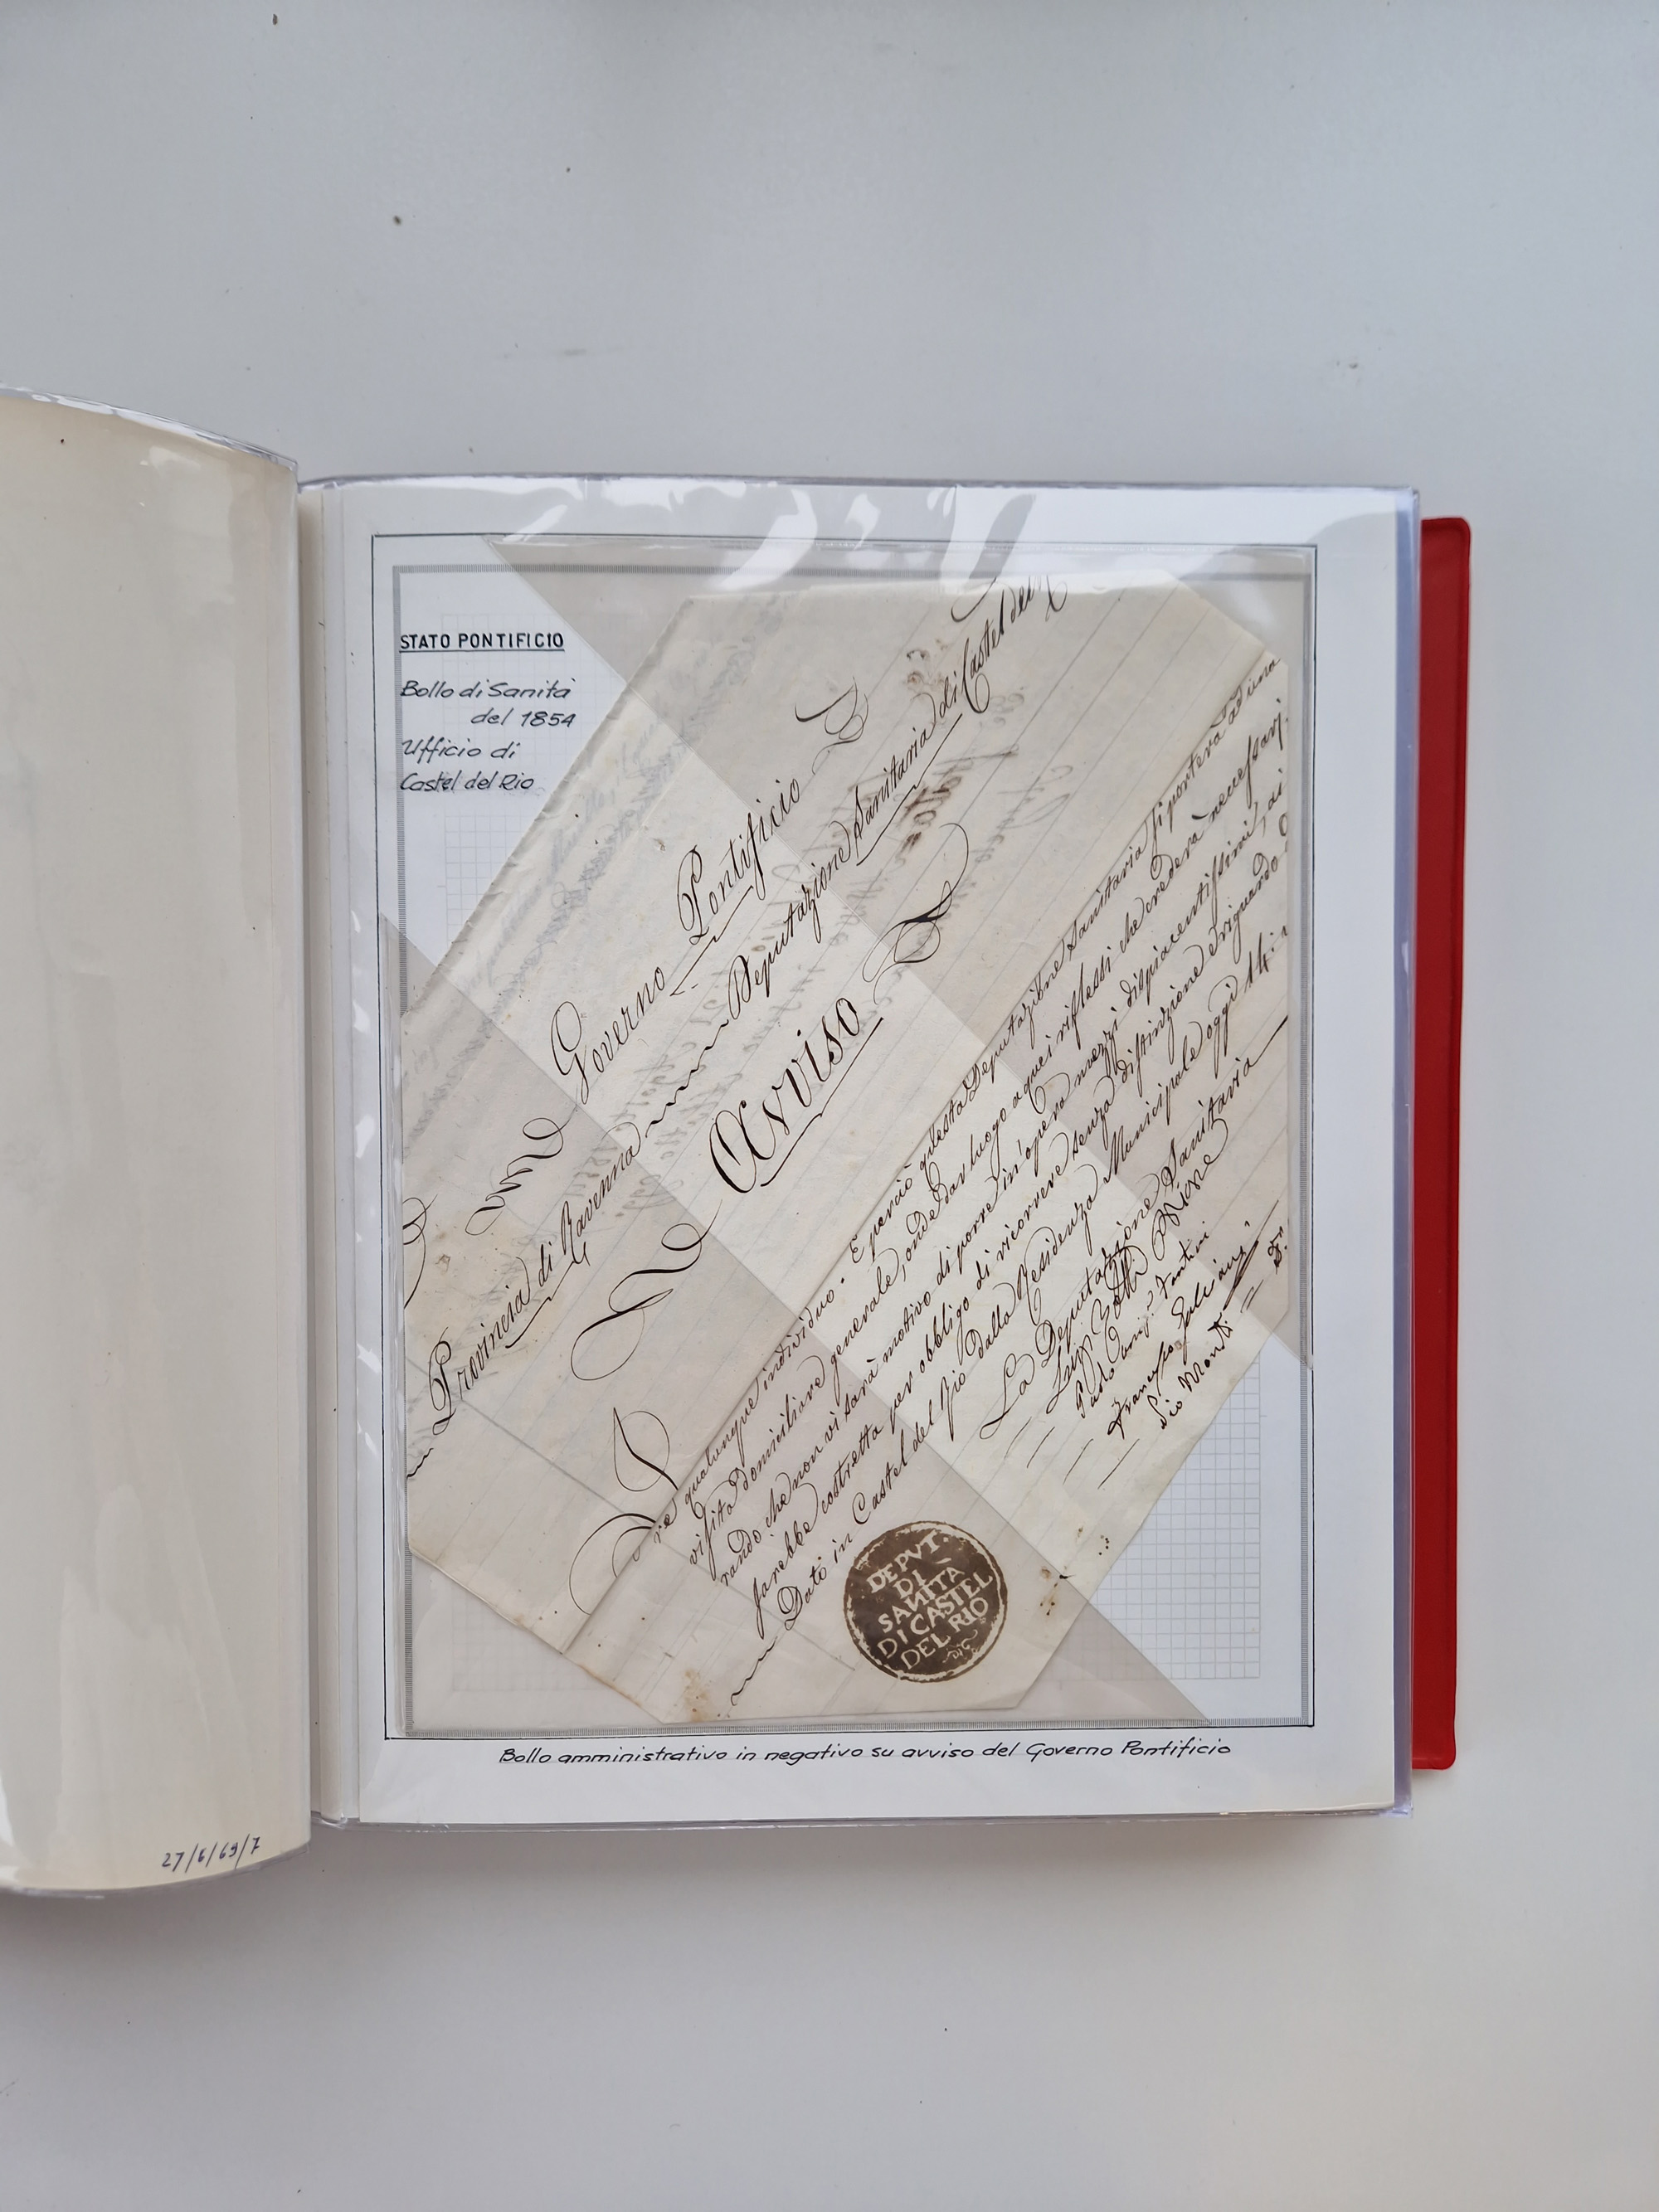 STATO PONTIFICIO
Bollo di Sanità
del 1854
Ufficio di
Castel del Rio
Governo Pontificio
Provincia di Ravenna Deputazione Sanitaria di Castel del
Avviso
re qualunque individuo. E perciò questa Deputazione Sanitaria si porterà ad una
visita domiciliare generale, onde dar luogo a quei riflessi che crederà necessarj
rando che non vi sarà motivo di porre in opera mezzi dispiacentissimi, di
sarebbe costretta per obbligo di ricorrere senza distinzione e riguardo
Dato in Castel del Rio dalla Residenza Municipale oggi 14:
La Deputazione Sanitaria
Luigi Priore
Fantini
Francesco Giuliani
Pio Monti
DEPVT.
DI
SANITA
DI CASTEL
DEL RIO
Bollo amministrativo in negativo su avviso del Governo Pontificio
27/6/69/7